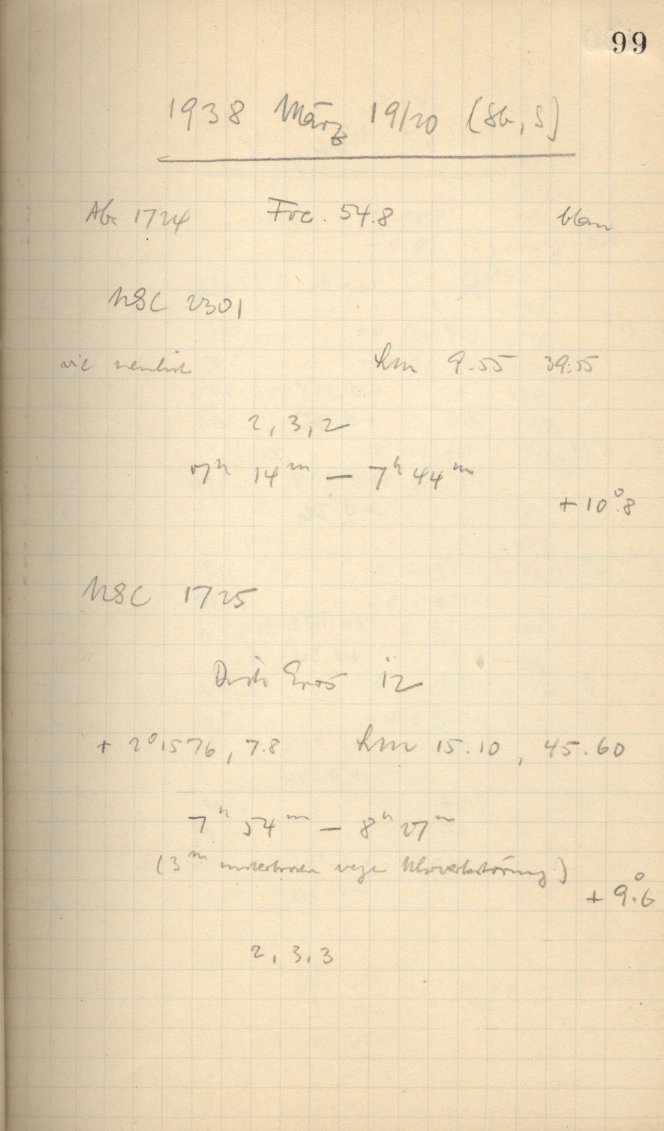 99
1938 März 19/20 (Sb, S)
1724 Foc. 54.8 blau
NGC 2301
wie neulich 9.55 39.55
2, 3, 2
7h 14m — 7h 44m
+10°.8
1725
+ 2°1576, 7.8 15.10, 45.60
7h 54m — 8h 27m
(3m unterbrochen wegen Uhrwerkstörung)
+ 9°.6
2, 3, 3